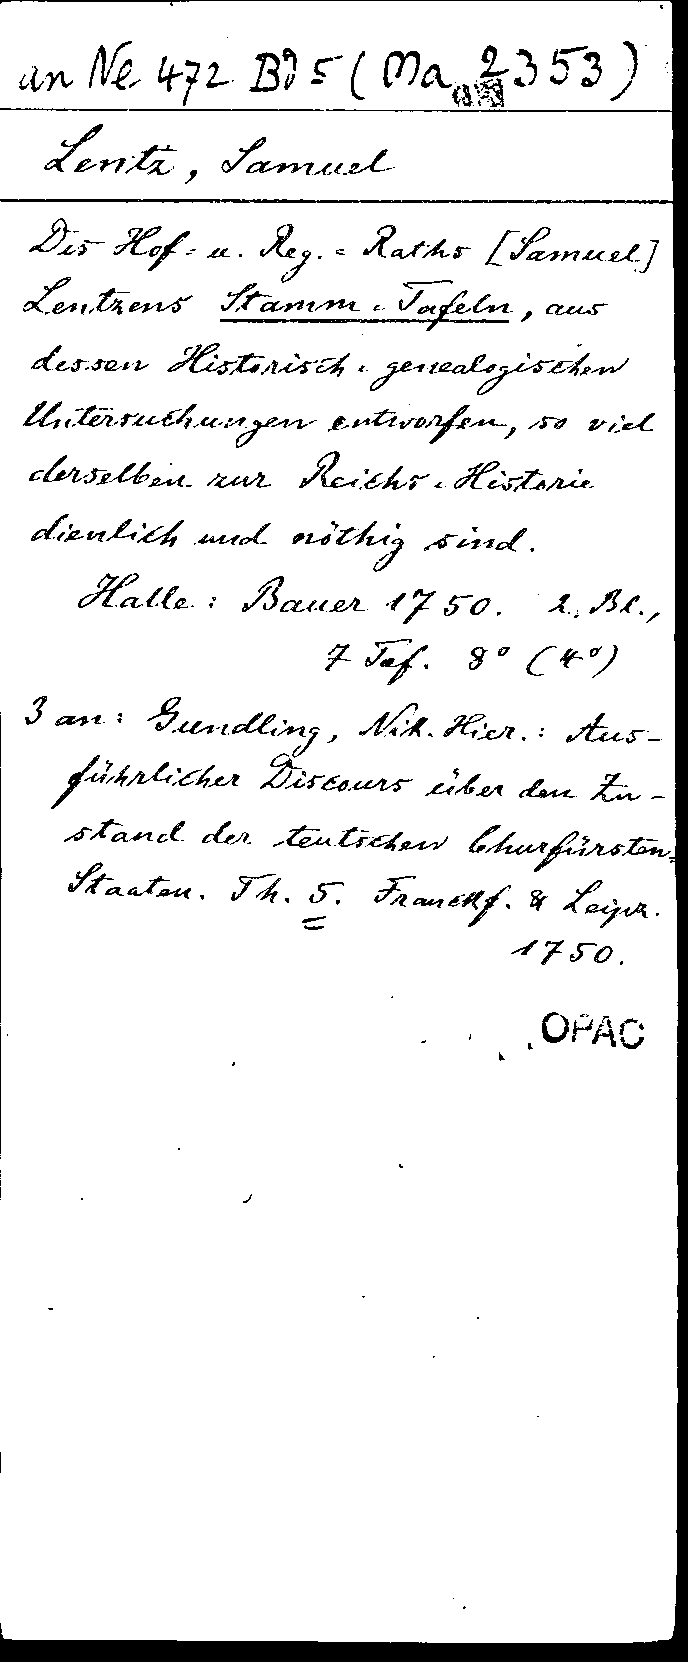 an Ne 472 Bd 5 (Ma 2353)
Lentz, Samuel
Des Hof= u. Reg.= Raths [Samuel]
Lentzens Stamm=Tafeln, aus
dessen Historisch=genealogischen
Untersuchungen entworfen, so viel
derselben zur Reichs=Historie
dienlich und nöthig sind.
Halle: Bauer 1750. 2 Bl.,
7 Taf. 8° (4°)
3 an: Gundling, Nik. Hier.: Aus-
führlicher Discours über den Zu-
stand der teutschen Churfürsten=
Staaten. Th. 5. Franckf. & Leipz.
1750.
OPAC